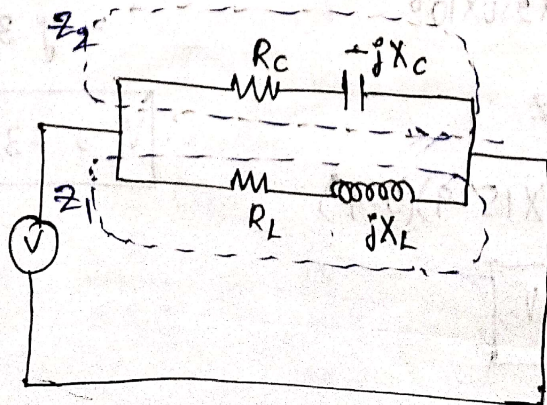 Z2
RC
-jXC
Z1
RL
jXL
V